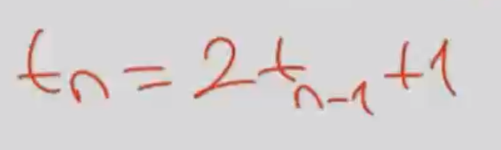 tₙ = 2tₙ₋₁ + 1